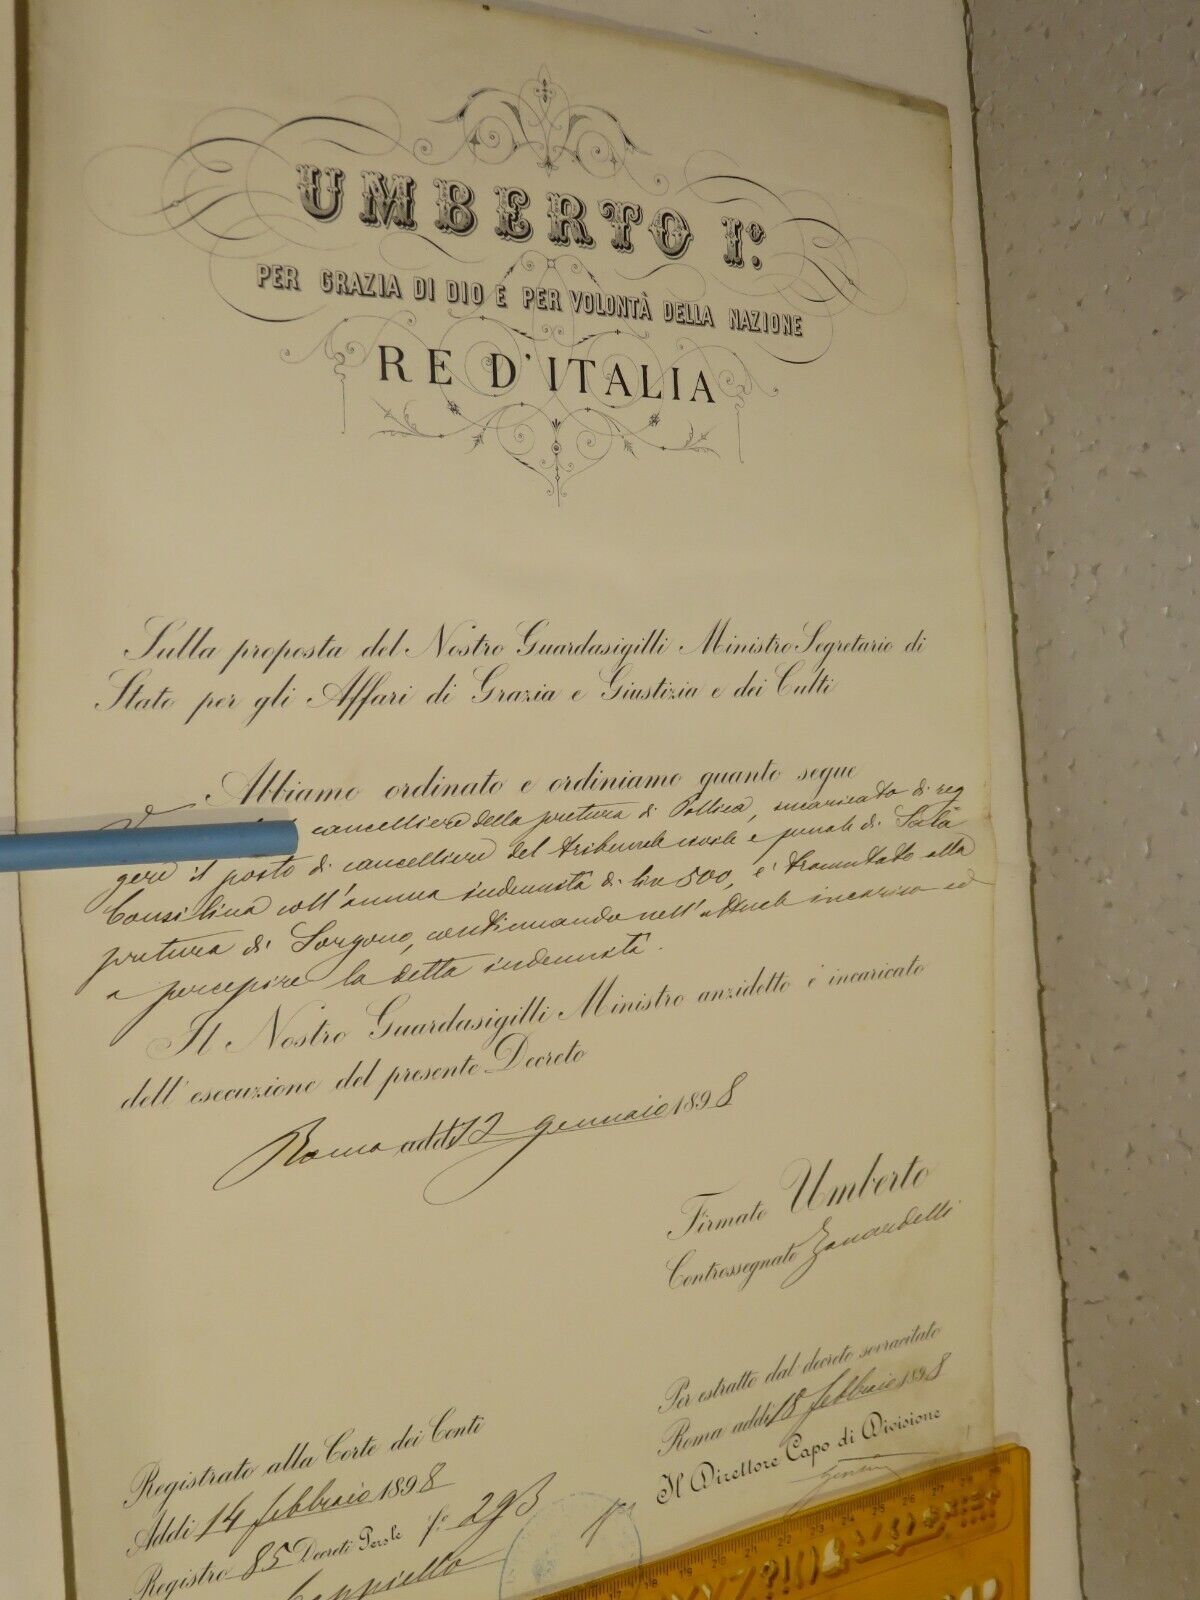 UMBERTO Iº.
PER GRAZIA DI DIO E PER VOLONTÀ DELLA NAZIONE
RE D'ITALIA
Sulla proposta del Nostro Guardasigilli Ministro Segretario di
Stato per gli Affari di Grazia e Giustizia e dei Culti
Abbiamo ordinato e ordiniamo quanto segue
cancelliere della pretura di Pollica, incaricato di reg
gere il posto di cancelliere del tribunale civile e penale di Sala
Consilina coll'annua indennità di lire 500, è tramutato alla
pretura di Sorgono, continuando nell'attuale incarico ed
a percepire la detta indennità.
Il Nostro Guardasigilli Ministro anzidetto è incaricato
dell'esecuzione del presente Decreto
Roma addì 12 gennaio 1898
Firmato Umberto
Controssegnato Zanardelli
Per estratto dal decreto sovracitato
Roma addì 18 febbraio 1898
Il Direttore Capo di Divisione
Registrato alla Corte dei Conti
Addì 14 febbraio 1898
Registro 85 Decreti Persle fº 293
Cappiello